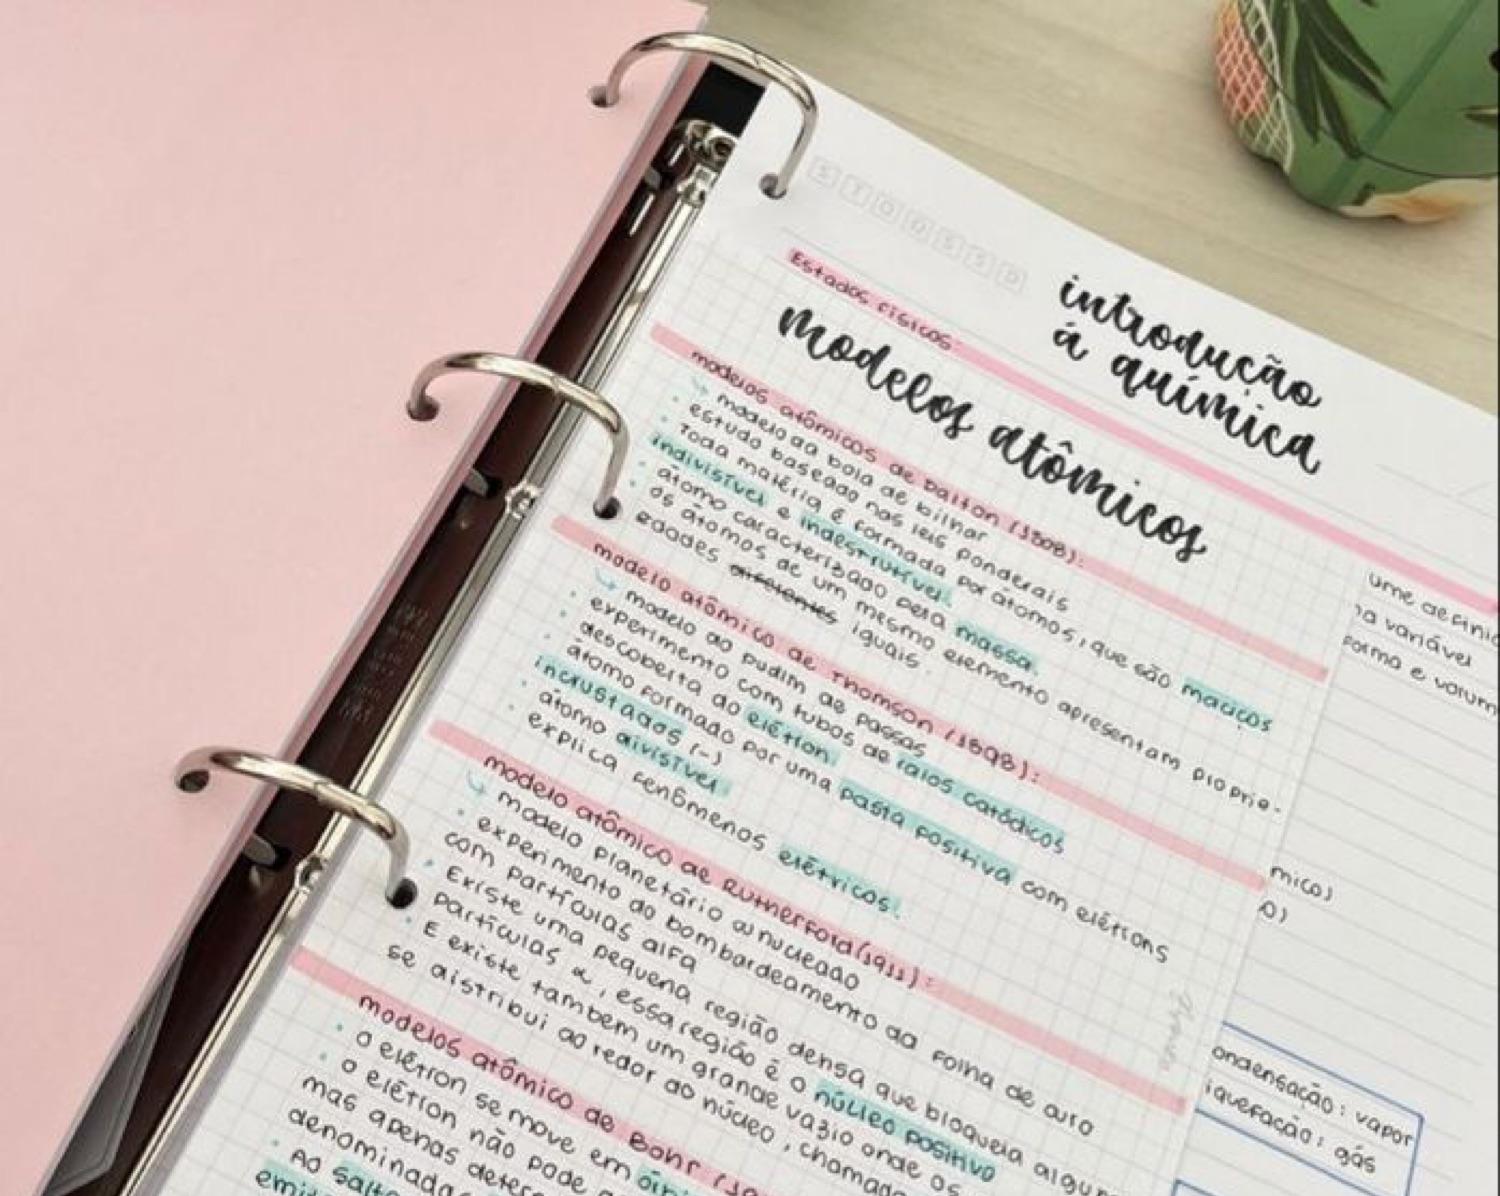 SUNDEED
introdução
á química
Estados físicos:
modelos atômicos
modelos atômicos de Dalton (1808):
modelo da bola de bilhar
estudo baseado nas leis ponderais
Toda matéria é formada por átomos, que são maciços
indivisível e indestrutível.
átomo caracterizado pela massa.
os átomos de um mesmo elemento apresentam proprie-
dades diferentes iguais.
modelo atômico de Thomson (1898):
modelo do pudim de passas
experimento com tubos de raios catódicos
descoberta do elétron.
átomo formado por uma pasta positiva com elétrons
incrustados (-)
átomo divisível.
explica fenômenos elétricos.
modelo atômico de Rutherford (1911):
modelo planetário ou nucleado
experimento do bombardeamento da folha de ouro
com partículas alfa
Existe uma pequena região densa que bloqueia algum
partículas α, essa região é o núcleo positivo
E existe também um grande vazio onde os
se distribui ao redor do núcleo, chamado
modelos atômico de Bohr (19
o elétron se move em órbi
o elétron não pode a
mas apenas deter
denominada
Ao salt
emit
ume defini
na variável
forma e volum
mico)
o)
ondensação: vapor
iquefação: gás